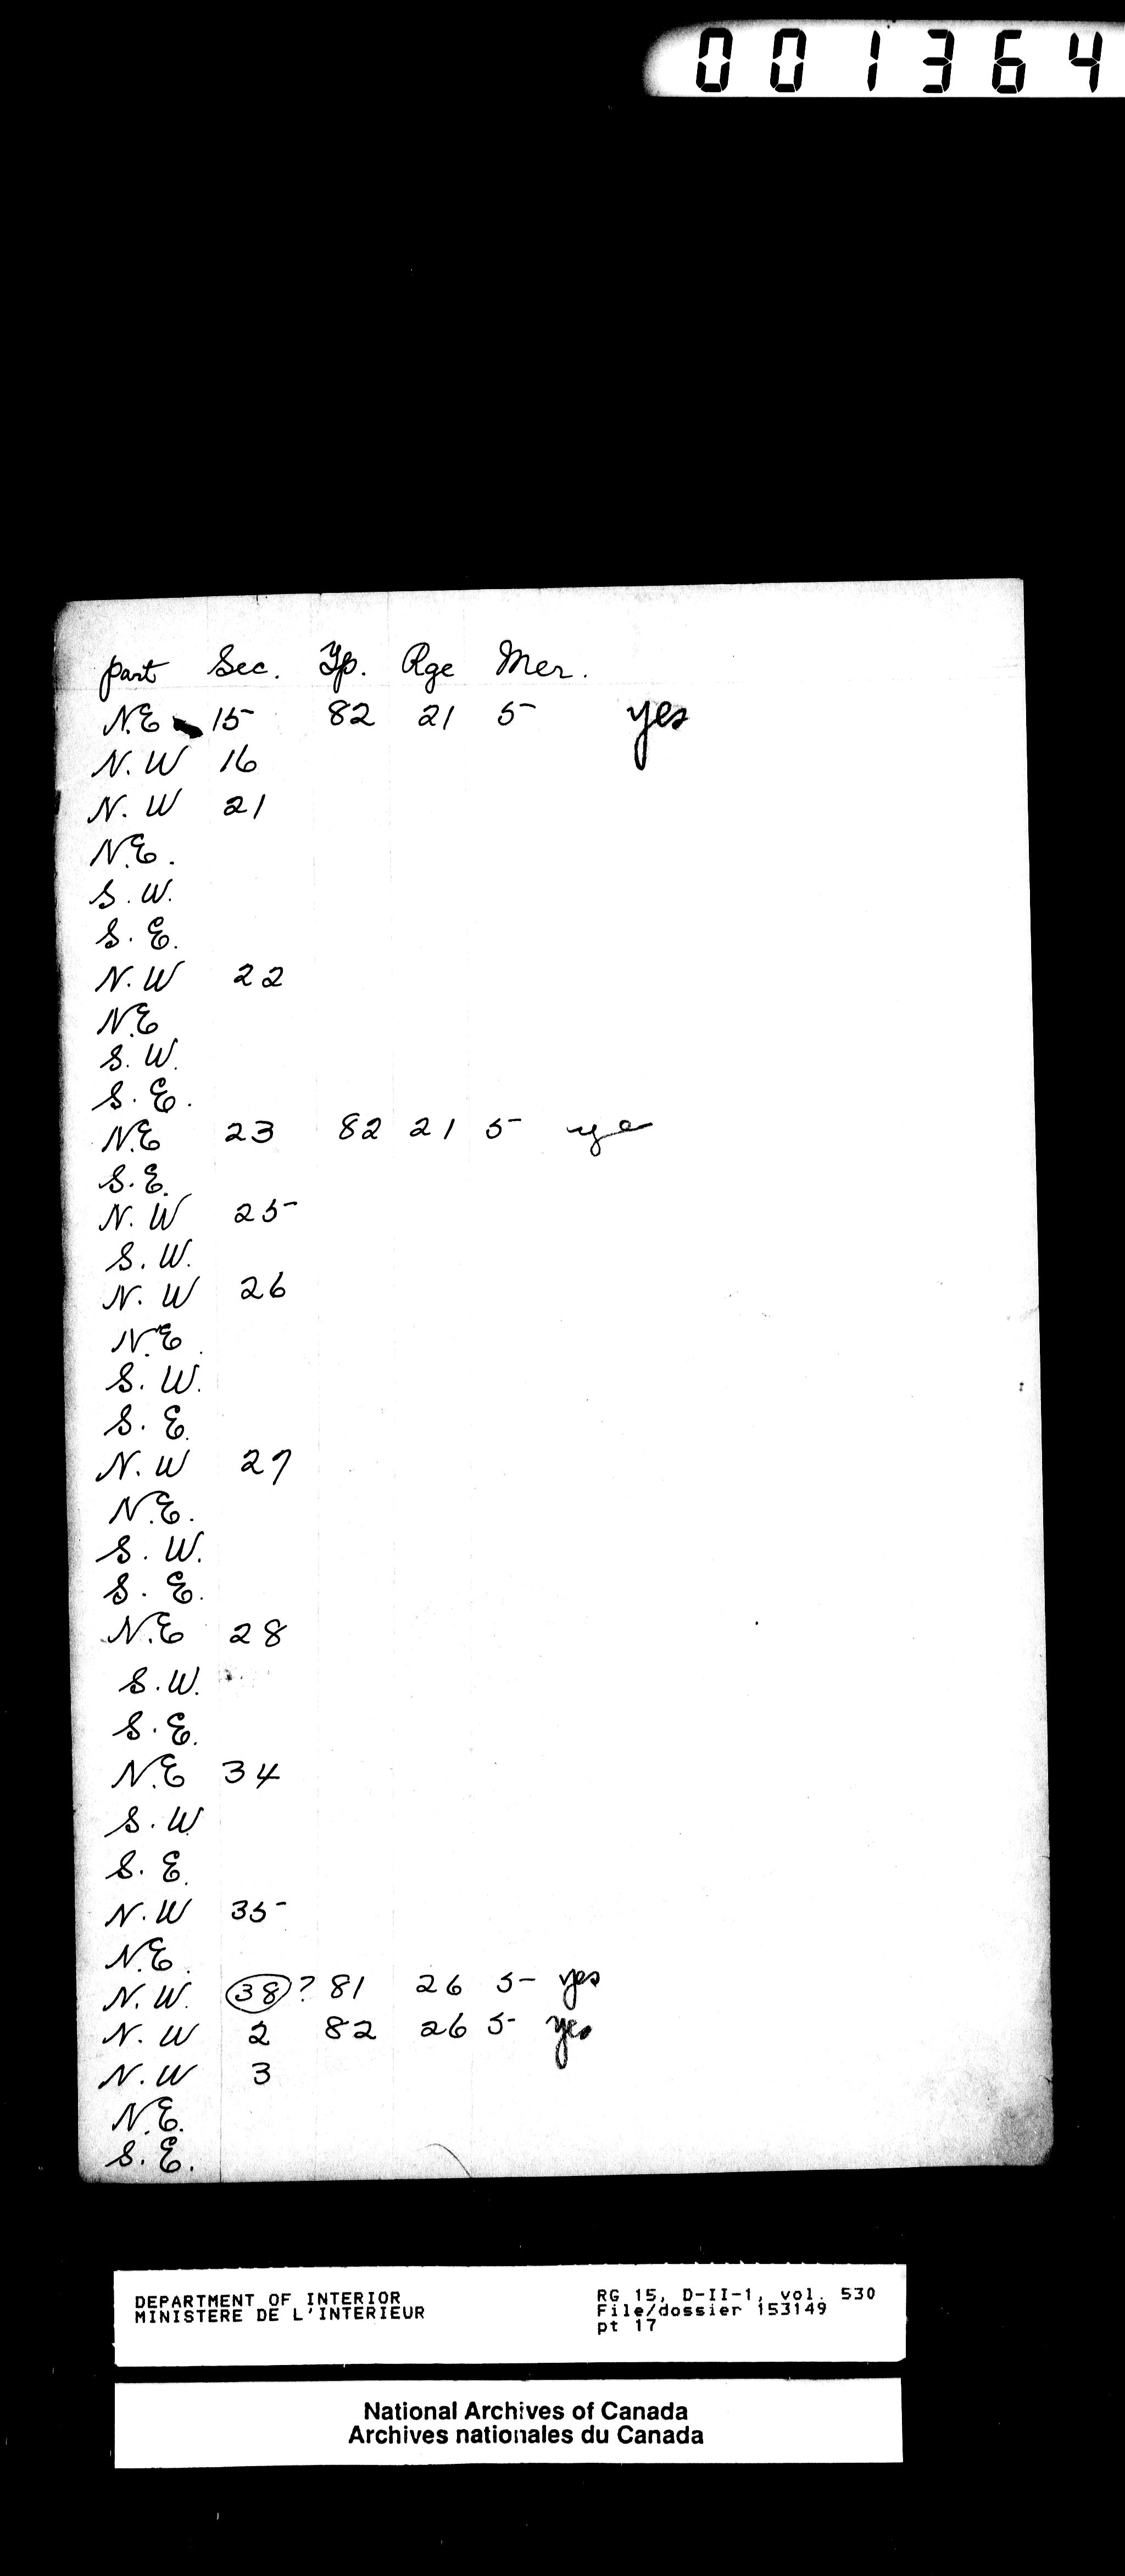 001364
part Sec. Tp. Rge Mer.
N.E 15 82 21 5 yes
N.W 16
N.W 21
N.E.
S.W.
S.E.
N.W 22
N.E
S.W.
S.E.
N.E 23 82 21 5 ye
S.E.
N.W 25
S.W.
N.W 26
N.E.
S.W.
S.E.
N.W 27
N.E.
S.W.
S.E.
N.E 28
S.W.
S.E.
N.E 34
S.W
S.E.
N.W 35
N.E.
N.W. 38? 81 26 5 yes
N.W 2 82 26 5 yes
N.W 3
N.E.
S.E.
DEPARTMENT OF INTERIOR RG 15, D-II-1, vol. 530
MINISTERE DE L'INTERIEUR File/dossier 153149
pt 17
National Archives of Canada
Archives nationales du Canada